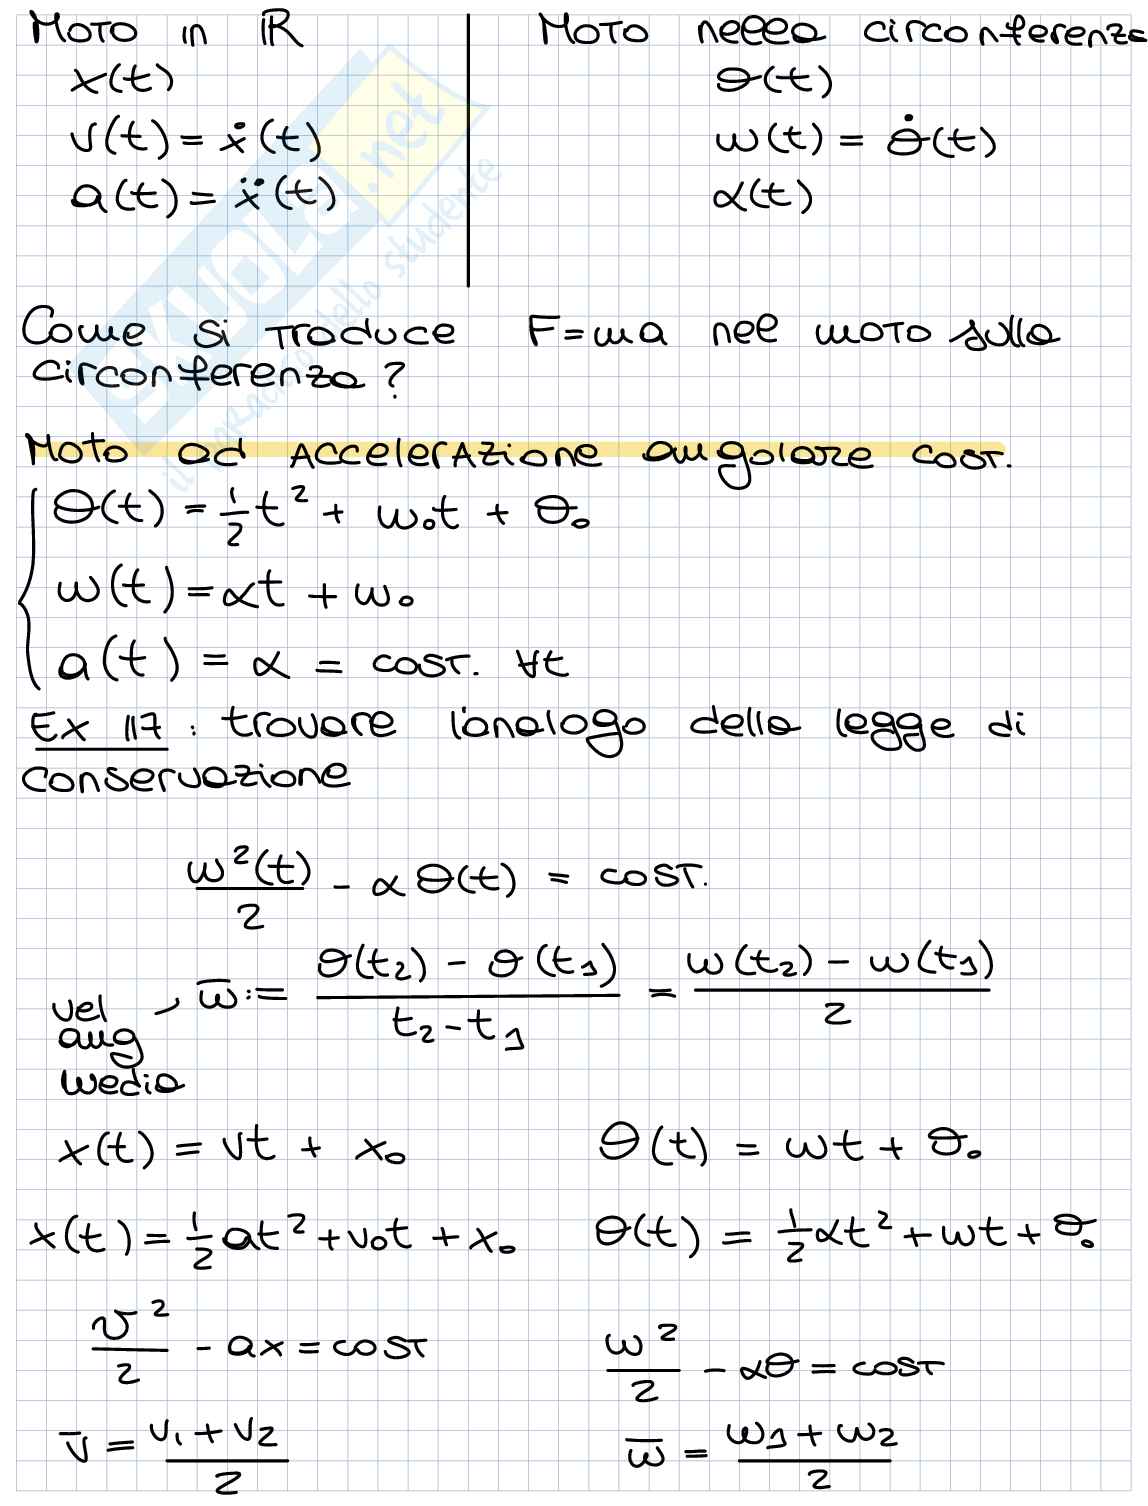 Moto in ℝ
x(t)
v(t) = ẋ(t)
a(t) = ẍ(t)
Moto nella circonferenza
θ(t)
ω(t) = θ̇(t)
α(t)
Come si traduce F=ma nel moto sulla
circonferenza?
Moto ad accelerazione angolare cost.
θ(t) = 1/2 t² + ω₀t + θ₀
ω(t) = αt + ω₀
a(t) = α = cost. ∀t
Ex 117 : trovare l'analogo della legge di
conservazione
ω²(t)/2 - αθ(t) = cost.
vel ang media, ω̄ := (θ(t₂) - θ(t₁))/(t₂ - t₁) = (ω(t₂) - ω(t₁))/2
x(t) = vt + x₀ θ(t) = ωt + θ₀
x(t) = 1/2 at² + v₀t + x₀ θ(t) = 1/2 αt² + ωt + θ₀
v²/2 - ax = cost ω²/2 - αθ = cost
v̄ = (v₁ + v₂)/2 ω̄ = (ω₁ + ω₂)/2
SKUOLA.net
il paradiso dello studente